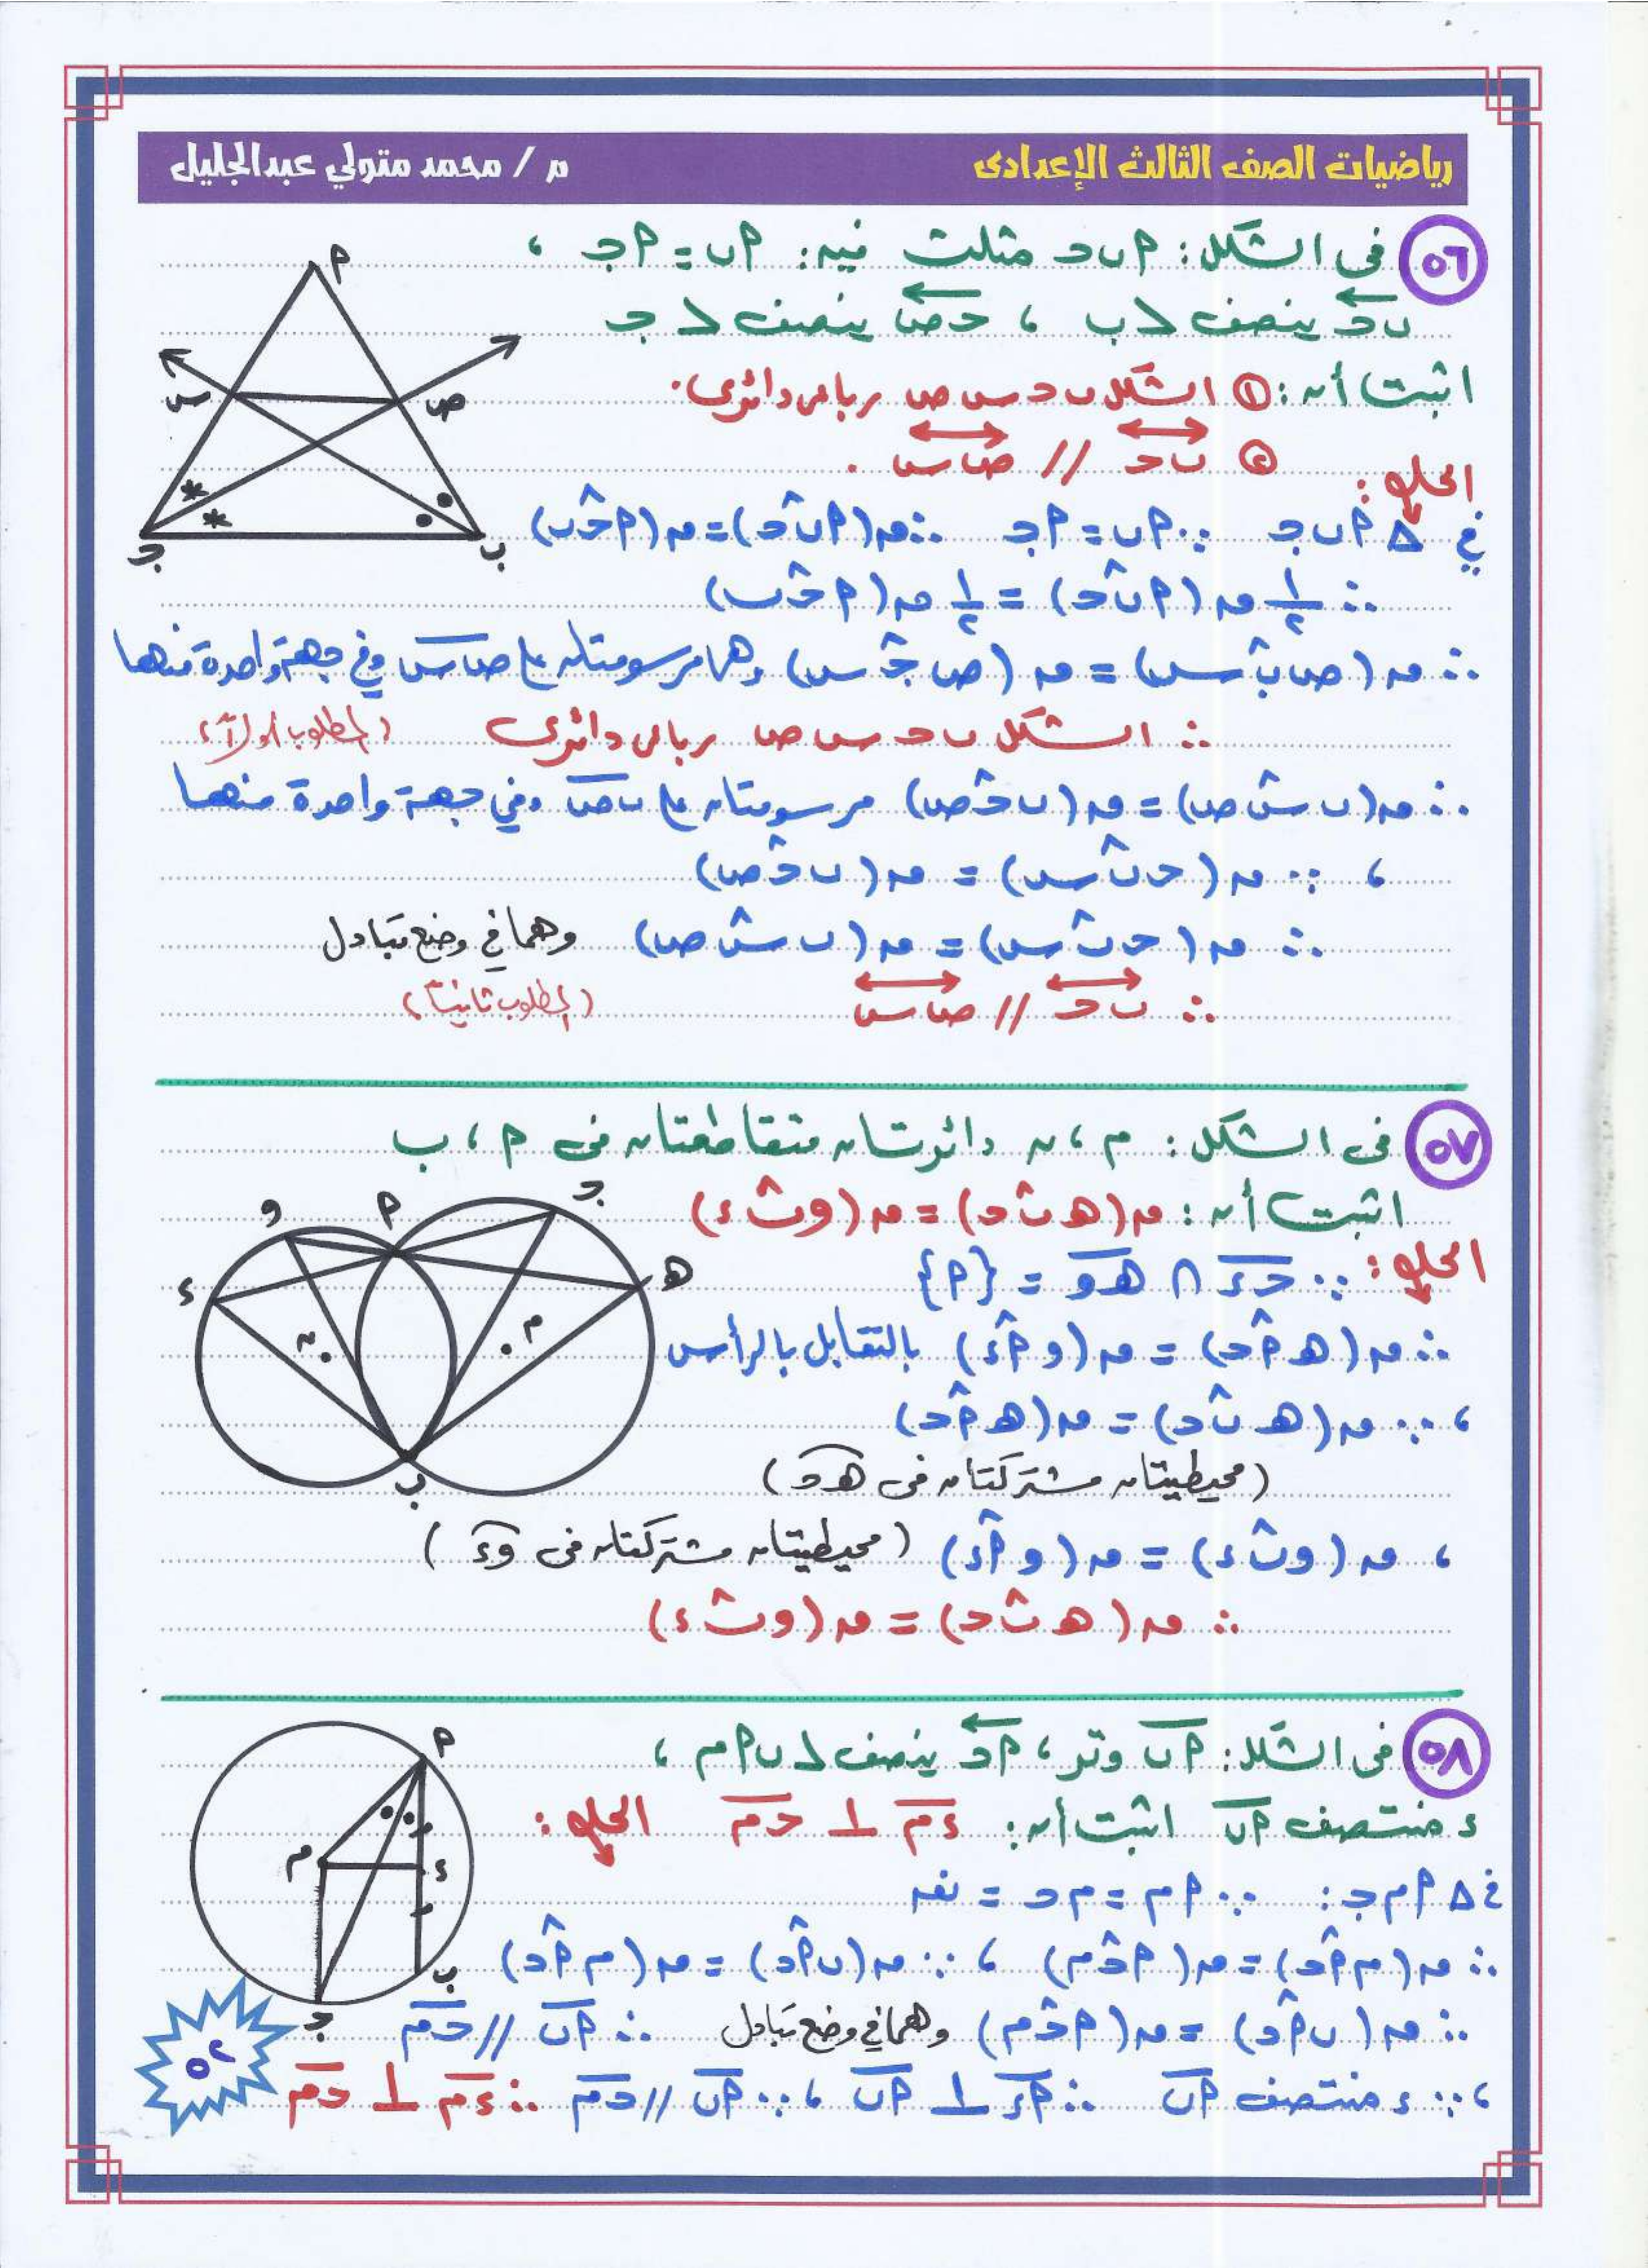 رياضيات الصف الثالث الإعدادى
م / محمد متولي عبدالجليل
٥٦ فى الشكل: أ ب ج مثلث فيه: أب = أج ،
بس ينصف ∠ب ، جص ينصف ∠ج
اثبت أن: ① الشكل ب ج س ص رباعى دائرى.
② ب ج // ص س .
الحل:
في Δ أ ب ج ∵ أب = أج ∴ ق(أب̂ج) = ق(أج̂ب)
∴ ١/٢ ق(أب̂ج) = ١/٢ ق(أج̂ب)
∴ ق(ص ب̂ س) = ق(ص ج̂ س) وهما مرسومتان على ص س وفى جهة واحدة منها
∴ الشكل ب ج س ص رباعى دائرى (المطلوب أولاً)
∴ ق(ب س̂ ص) = ق(ب ج̂ ص) مرسومتان على ب ص وفي جهة واحدة منها
، ∵ ق(ج ب̂ س) = ق(ب ج̂ ص)
∴ ق(ج ب̂ س) = ق(ب س̂ ص) وهما في وضع تبادل
∴ ب ج // ص س (المطلوب ثانياً)
٥٧ فى الشكل: م ، ن دائرتان متقاطعتان فى أ ، ب
اثبت أن: ق(ه ب̂ ج) = ق(و ب̂ ء)
الحل: ∵ ج ء ∩ ه و = {أ}
∴ ق(ه أ̂ ج) = ق(و أ̂ ء) بالتقابل بالرأس
، ∵ ق(ه ب̂ ج) = ق(ه أ̂ ج)
(محيطيتان مشتركتان فى ه ج)
، ق(و ب̂ ء) = ق(و أ̂ ء) (محيطيتان مشتركتان فى و ء)
∴ ق(ه ب̂ ج) = ق(و ب̂ ء)
٥٨ فى الشكل: أب وتر ، أج ينصف ∠ ب أ م ،
ء منتصف أب اثبت أن: ء م ⊥ ج م الحل:
في Δ أ م ج : ∵ أم = م ج = نق
∴ ق(م أ̂ ج) = ق(أ ج̂ م) ، ∵ ق(ب أ̂ ج) = ق(م أ̂ ج)
∴ ق(ب أ̂ ج) = ق(أ ج̂ م) وهما في وضع تبادل ∴ أب // ج م
، ∵ ء منتصف أب ∴ أء ⊥ أب ، ∵ أب // ج م ∴ ء م ⊥ ج م
أ
س
ص
ج
ب
و
أ
ج
ه
ء
ن
م
ب
أ
م
ء
ب
ج
٥٢